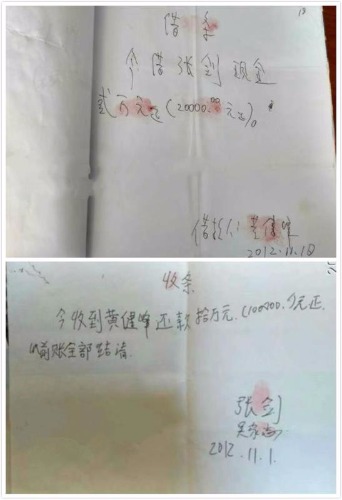 借条
今借张剑现金
贰万元正(20000.00元正)。
借款人:黄健峰
2012.11.18
收条
今收到黄健峰还款拾万元.(100000.)元正.
以前账全部结清.
张剑
2012.11.1.